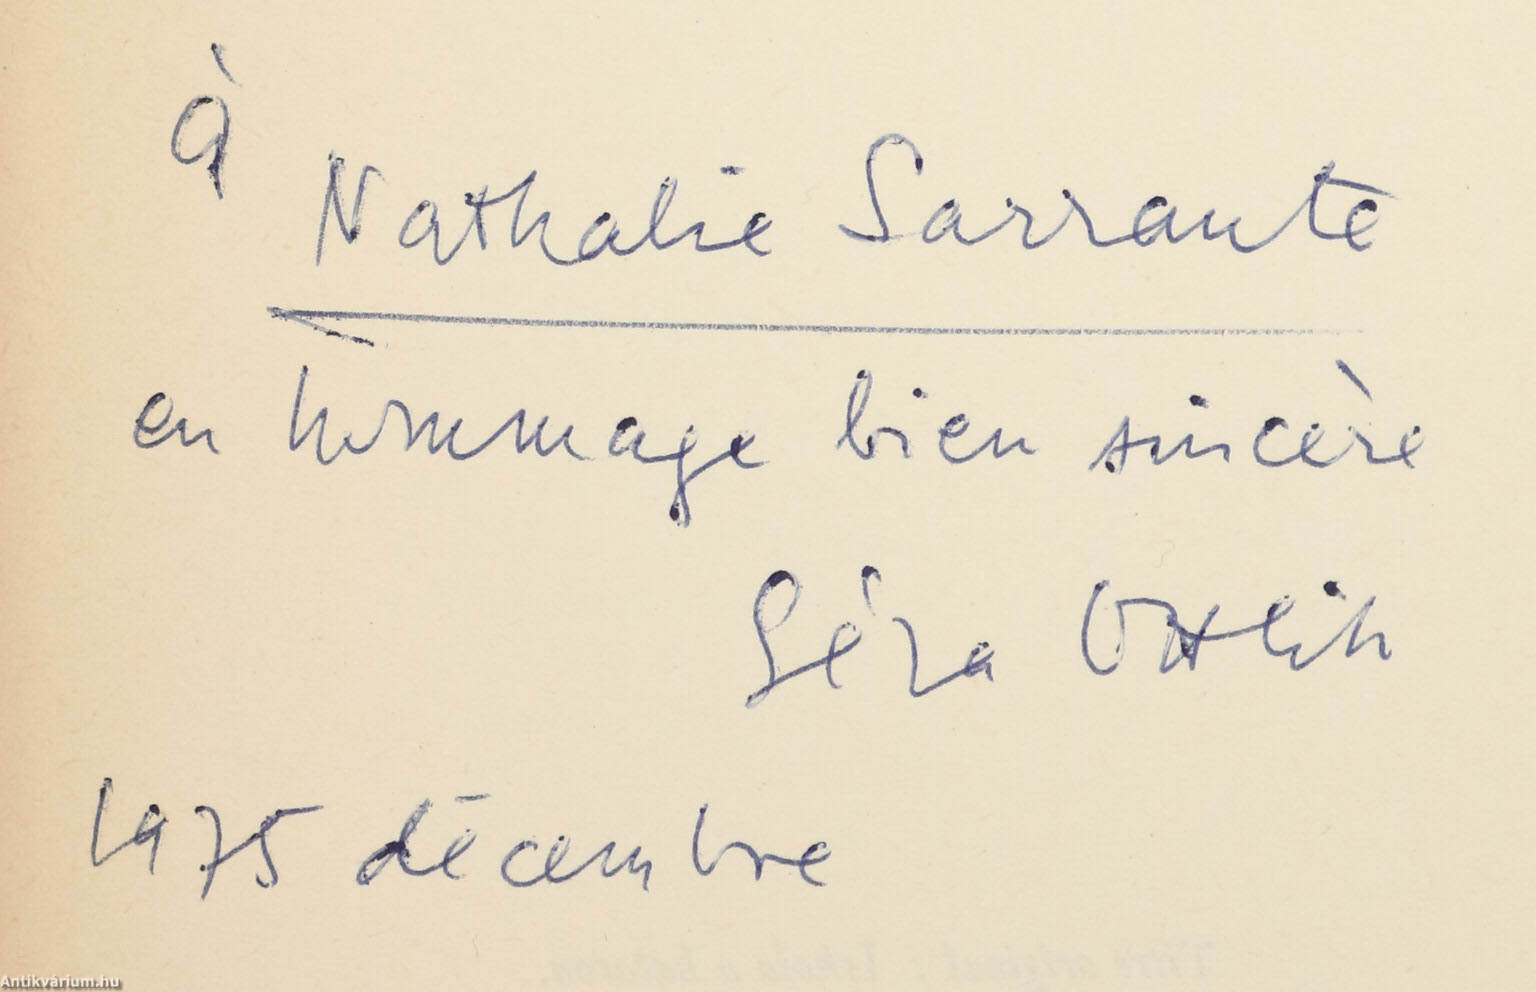 à
Nathalie Sarraute
en hommage bien sincère
Géza Ottlik
1975 décembre
Antikvárium.hu